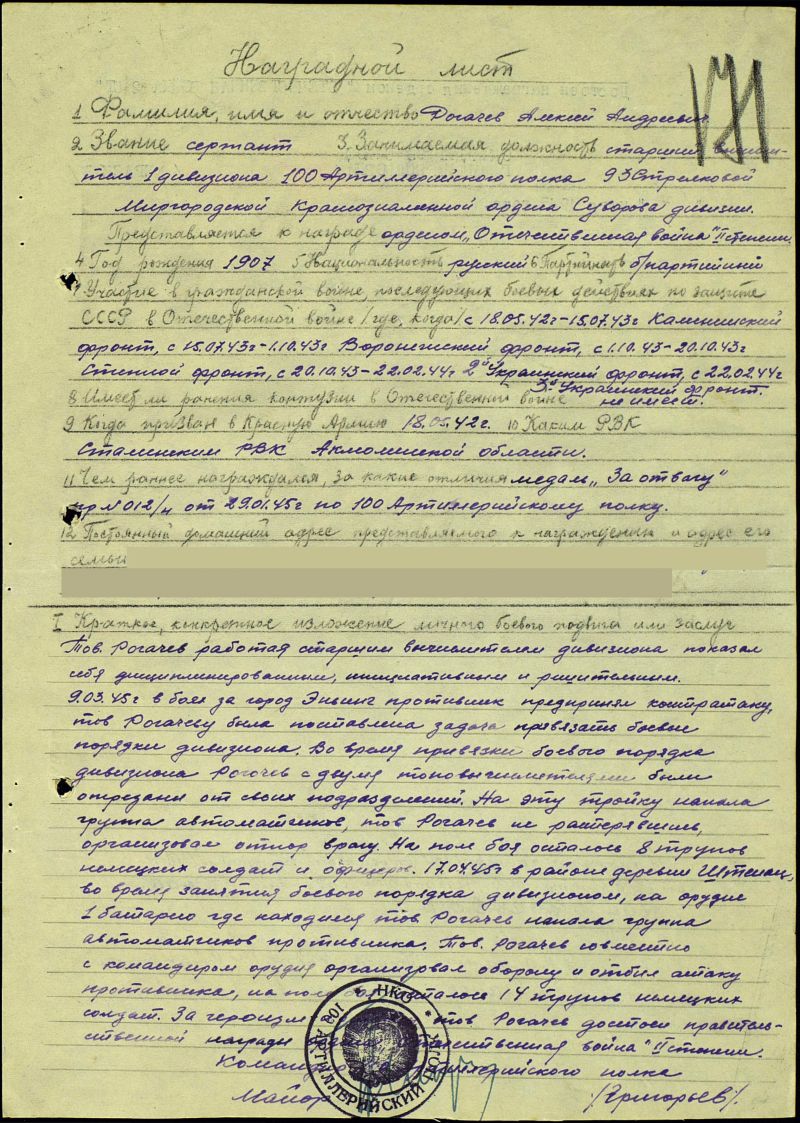 Наградной лист
171
1 Фамилия, имя и отчество Рогачев Алексей Андреевич
2 Звание сержант 3. Занимаемая должность старший вычисли-
тель 1 дивизиона 100 Артиллерийского полка 93 Стрелковой
Миргородской Краснознаменной ордена Суворова дивизии.
Представляется к награде орденом „Отечественная война" II степени.
4 Год рождения 1907 5 Национальность руский 6 Партийность б/партийний
7 Участие в гражданской войне, последующих боевых действиях по защите
СССР в Отечественной войне /где, когда/ с 18.05.42г-15.07.43г Калининский
фронт, с 15.07.43г-1.10.43г Воронежский фронт, с 1.10.43-20.10.43г
Степной фронт, с 20.10.43-22.02.44г 2й Украинский фронт, с 22.02.44г
3й Украинский фронт.
8 Имеет ли ранения контузии в Отечественной войне не имеет.
9 Когда призван в Красную Армию 18.05.42г. 10 Каким РВК
Сталинским РВК Акмолинской области.
11 Чем раннее награждался, за какие отличия медаль „За отвагу"
пр № 012/н от 29.01.45г по 100 Артиллерийскому полку.
12 Постоянный домашний адрес представляемого к награждению и адрес его
семьи
I Краткое, конкретное изложение личного боевого подвига или заслуг
Тов. Рогачев работая старшим вычислителем дивизиона показал
себя дисциплинированным, инициативным и решительным.
9.03.45г в боях за город Эньинг противник предпринял контратаку,
тов Рогачеву была поставлена задача привязать боевые
порядки дивизиона. Во время привязки боевого порядка
дивизиона Рогачев с двумя топовычислителями были
отрезаны от своих подразделений. На эту тройку напала
группа автоматчиков, тов Рогачев не растерявшись,
организовал отпор врагу. На поле боя осталось 8 трупов
немецких солдат и офицеров. 17.04.45г в районе деревни
во время занятия боевого порядка дивизионом, на орудие
1 батареи где находился тов. Рогачев напала группа
автоматчиков противника. Тов. Рогачев совместно
с командиром орудия организовал оборону и отбил атаку
противника, на поле осталось 14 трупов немецких
солдат. За героизм тов Рогачев достоен правитель-
ственной награды „Отечественная война" II степени.
Командир Артиллерийского полка
Майор /Григорьев/.
НКО
100 АРТИЛЛЕРИЙСКИЙ ПОЛК